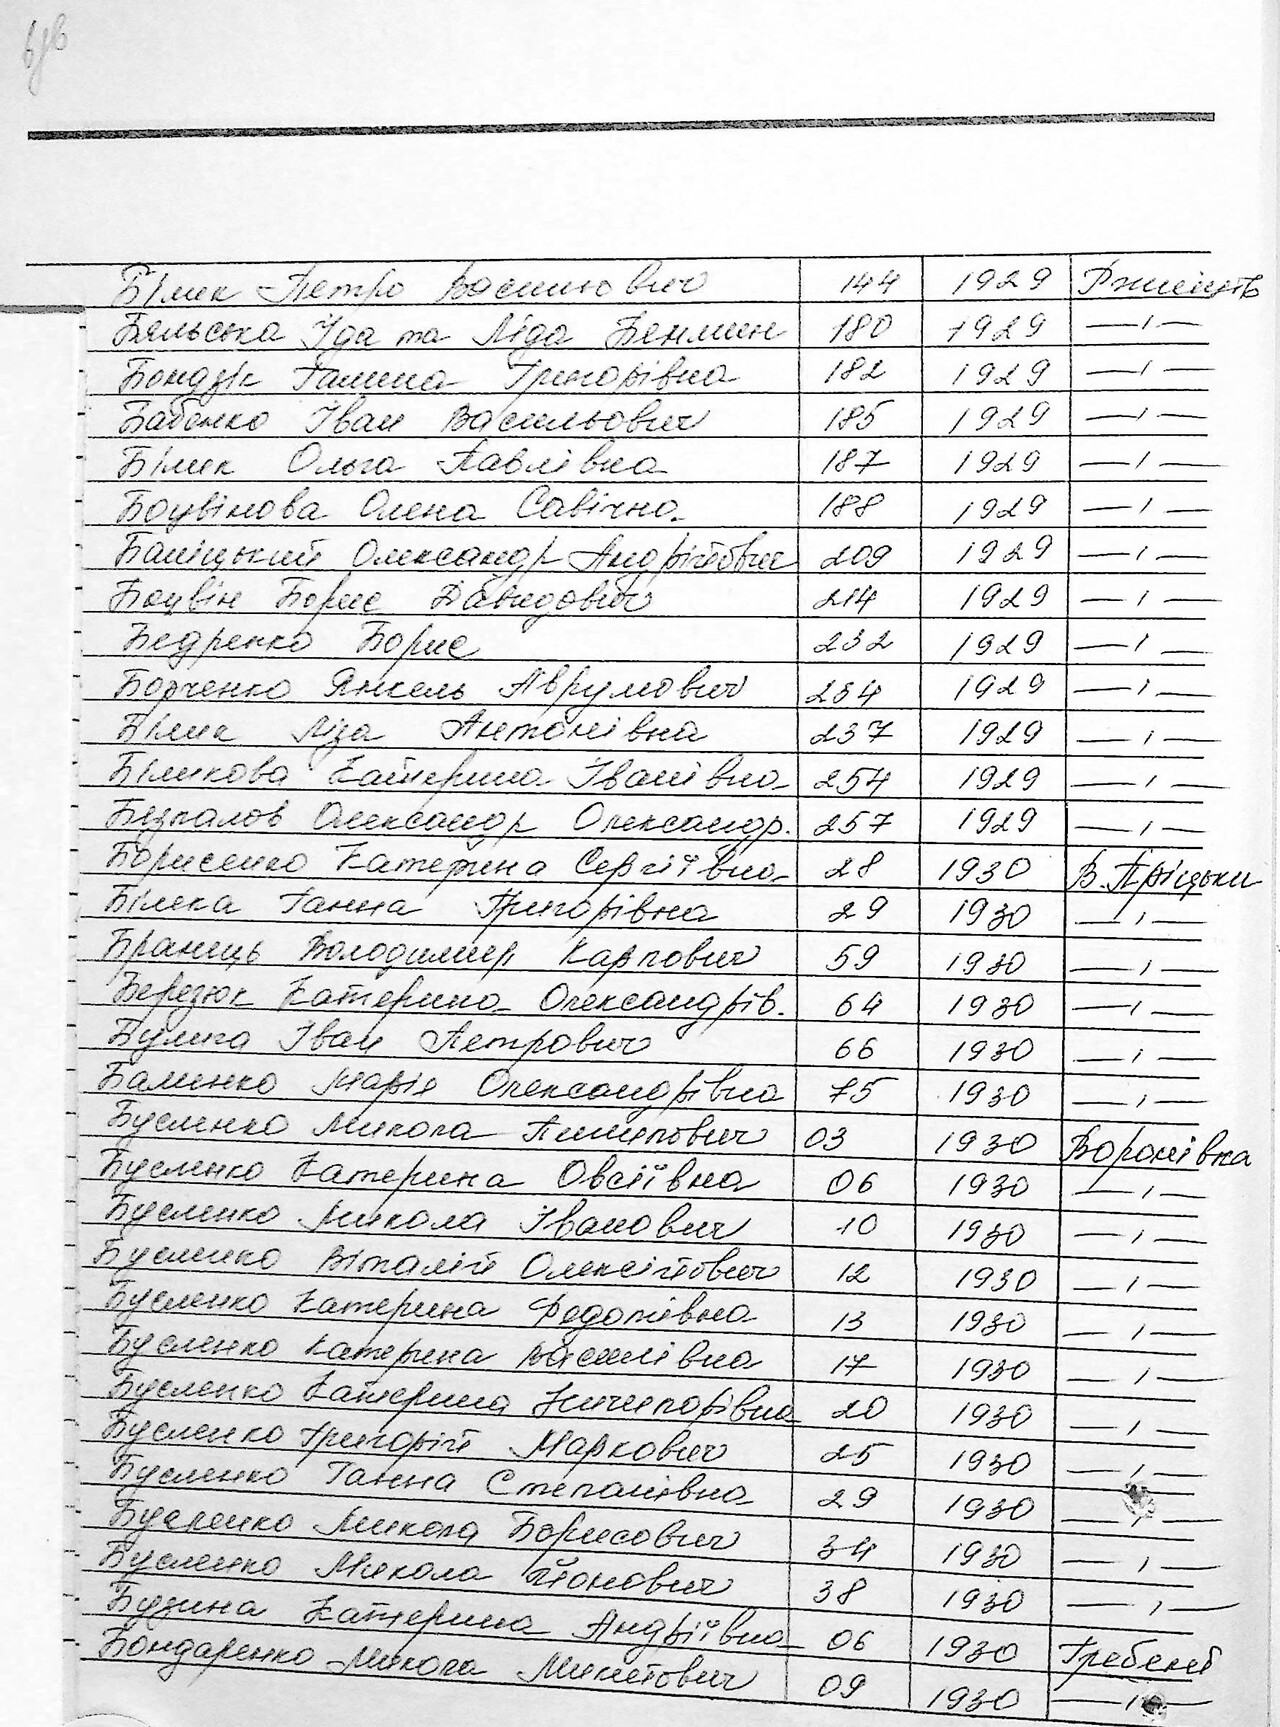 Білик Петро Васильович 144 1929 Ржищів
Бяльська Іда та Ліда Бенмин 180 1929 —〃—
Бондзік Галина Григорівна 182 1929 —〃—
Бабенко Іван Васильович 185 1929 —〃—
Білик Ольга Павлівна 187 1929 —〃—
Боцвінова Олена Савічна 188 1929 —〃—
Баніцький Олександр Андрійович 209 1929 —〃—
Боцвін Борис Давидович 214 1929 —〃—
Бедренко Борис 232 1929 —〃—
Борченко Янкель Аврумович 254 1929 —〃—
Білик Ліза Антонівна 237 1929 —〃—
Біликова Катерина Іванівна 254 1929 —〃—
Безпалов Олександр Олександр. 257 1929 —〃—
Борисенко Катерина Сергіївна 28 1930 В. Пріцьки
Біліка Ганна Григорівна 29 1930 —〃—
Бранець Володимир Карпович 59 1930 —〃—
Березюк Катерина Олександрів. 64 1930 —〃—
Булига Іван Петрович 66 1930 —〃—
Баленко Марія Олександрівна 75 1930 —〃—
Бусленко Микола Пилипович 03 1930 Воронівка
Бусленко Катерина Овсіївна 06 1930 —〃—
Бусленко Микола Іванович 10 1930 —〃—
Бусленко Віталій Олексійович 12 1930 —〃—
Бусленко Катерина Федотівна 13 1930 —〃—
Бусленко Катерина Василівна 17 1930 —〃—
Бусленко Катерина Ничипорівна 20 1930 —〃—
Бусленко Григорій Маркович 25 1930 —〃—
Бусленко Ганна Степанівна 29 1930 —〃—
Бусленко Микола Борисович 34 1930 —〃—
Бусленко Микола Йонович 38 1930 —〃—
Бузина Катерина Андріївна 06 1930 Гребені
Бондаренко Микола Микитович 09 1930 —〃—